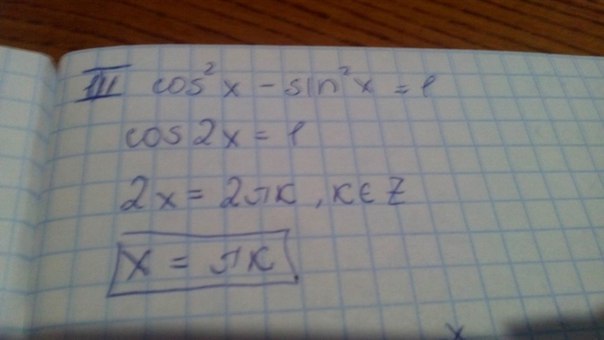 III cos²x - sin²x = 1
cos2x = 1
2x = 2πк, к∈Z
x = πк
x